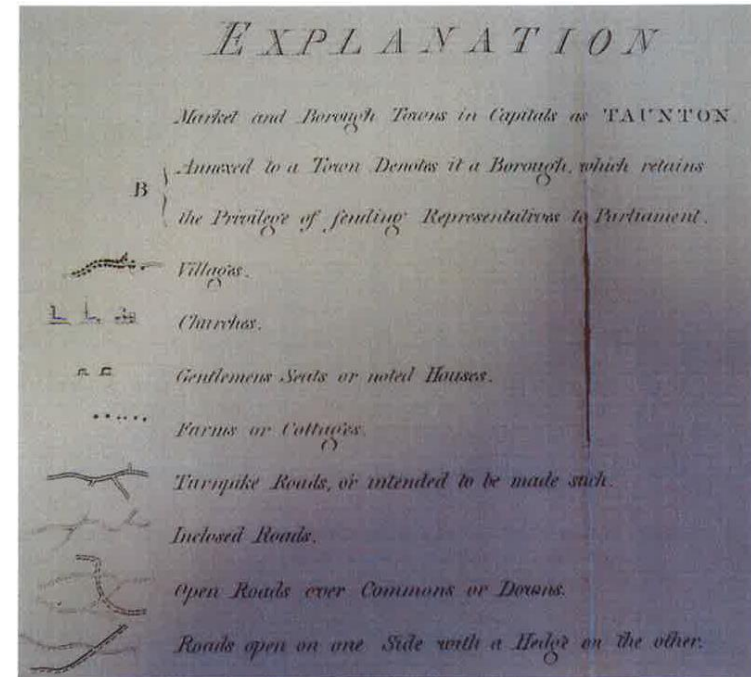 EXPLANATION
Market and Borough Towns in Capitals as TAUNTON
B
Annexed to a Town Denotes it a Borough, which retains
the Privilege of ſending Representatives to Parliament.
Villages.
Churches.
Gentlemens Seats or noted Houses.
Farms or Cottages.
Turnpike Roads, or intended to be made such.
Inclosed Roads.
Open Roads over Commons or Downs.
Roads open on one Side with a Hedge on the other.